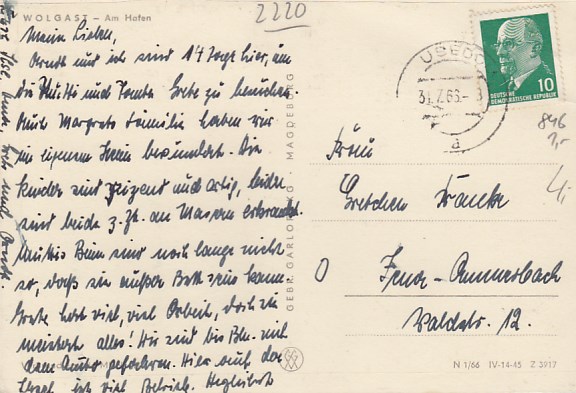 WOLGAST – Am Hafen
2220
Meine Lieben,
Arndt und ich sind 14 Tage hier, um
die Mutti und Tante Grete zu besuchen.
Auch Margrets Familie haben wir
im eigenen Heim bewundert. Die
Kinder sind reizend und artig, leider
sind beide z. Zt. an Masern erkrankt.
Muttis Beine sind noch lange nicht
so, daß sie außer Bett sein kann.
Grete hat viel, viel Arbeit, doch sie
meistert alles! Wir sind bis Bln. mit
dem Auto gefahren. Hier auf der
ist viel Betrieb. Herzlichst
Ilse und Arndt.
GEBR. GARLOFF KG MAGDEBURG
USEDOM
31.7.66
a
10
DEUTSCHE
DEMOKRATISCHE REPUBLIK
846
1,-
4,-
Frau
Gretchen Francke
Jena-Ammerbach
Waldstr. 12.
N 1/66 IV-14-45 Z 3917